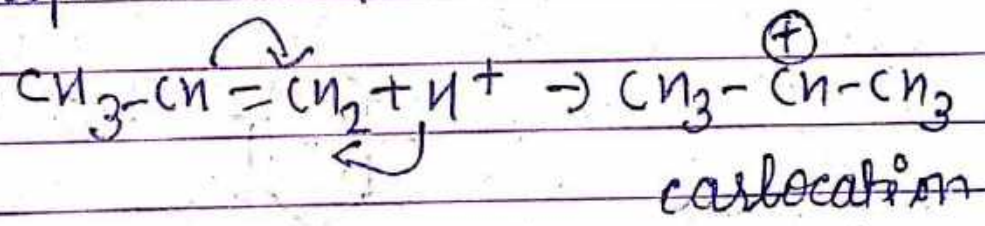 CH₃-CH=CH₂+H⁺ → CH₃-C⊕H-CH₃
carbocation